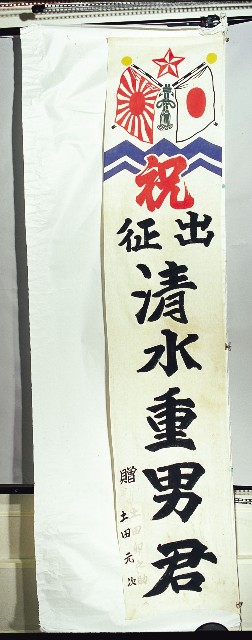 祝
出征
清水重男君
贈
土田元次